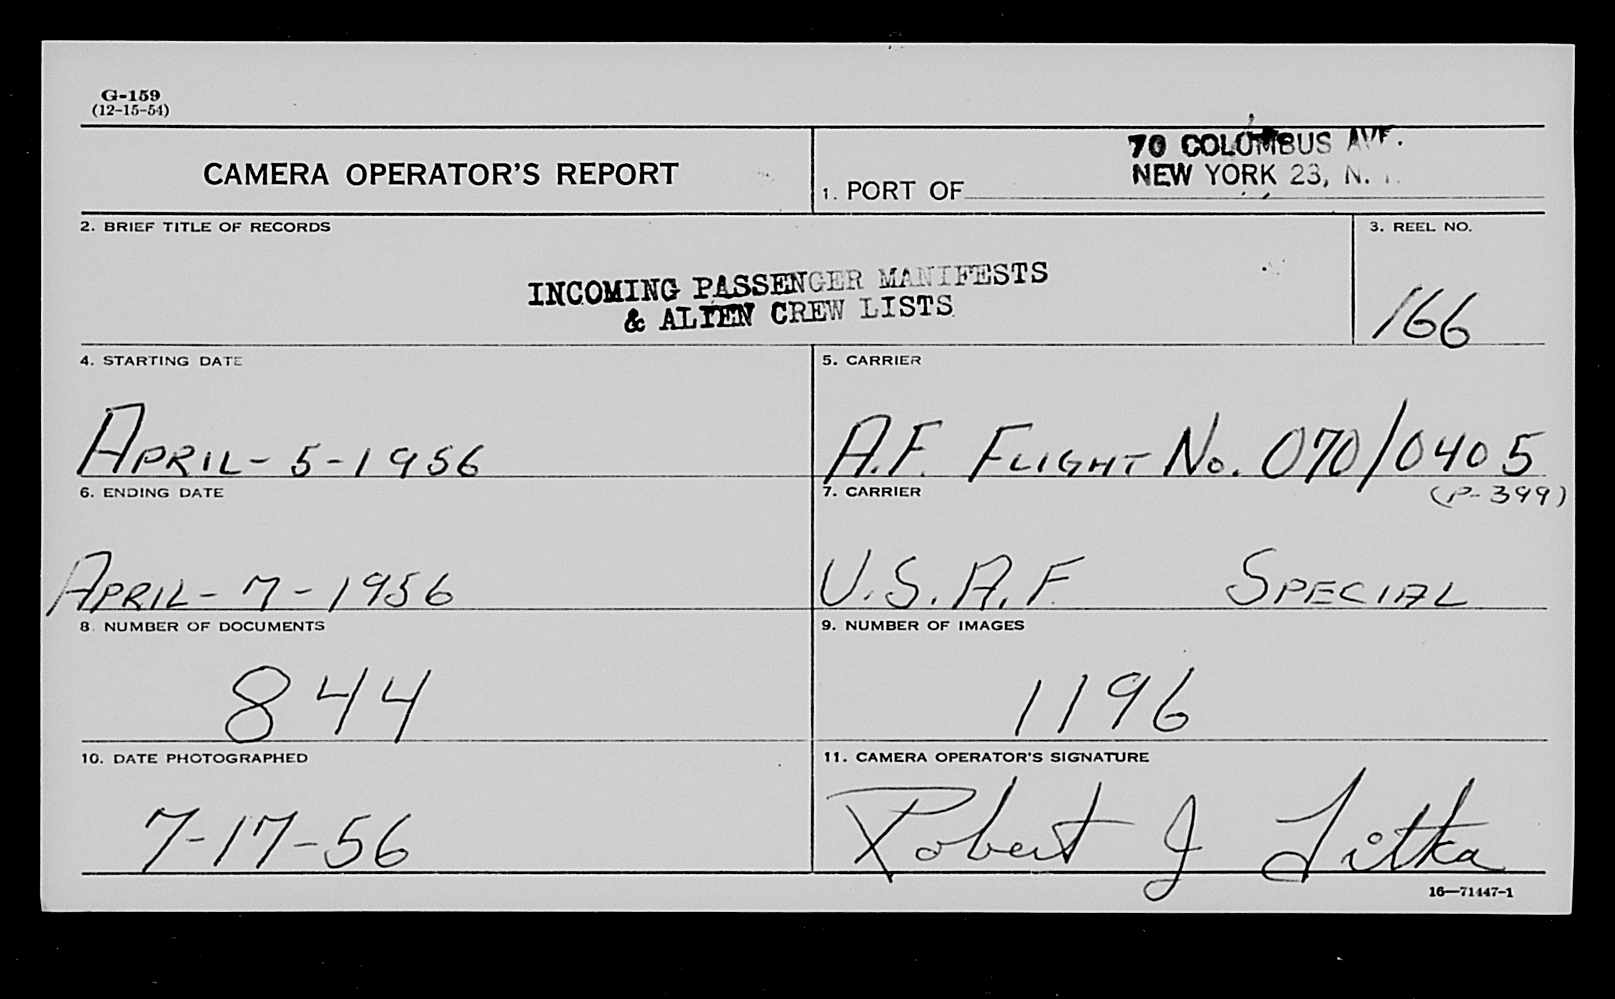 G-159
(12-15-54)
CAMERA OPERATOR'S REPORT
1. PORT OF
70 COLUMBUS AVE.
NEW YORK 23, N. Y.
2. BRIEF TITLE OF RECORDS
INCOMING PASSENGER MANIFESTS
& ALIEN CREW LISTS
3. REEL NO.
166
4. STARTING DATE
APRIL-5-1956
5. CARRIER
A.F. FLIGHT No. 070/0405
(P-399)
6. ENDING DATE
APRIL-7-1956
7. CARRIER
U.S.A.F. SPECIAL
8. NUMBER OF DOCUMENTS
844
9. NUMBER OF IMAGES
1196
10. DATE PHOTOGRAPHED
7-17-56
11. CAMERA OPERATOR'S SIGNATURE
Robert J Litka
16—71447-1